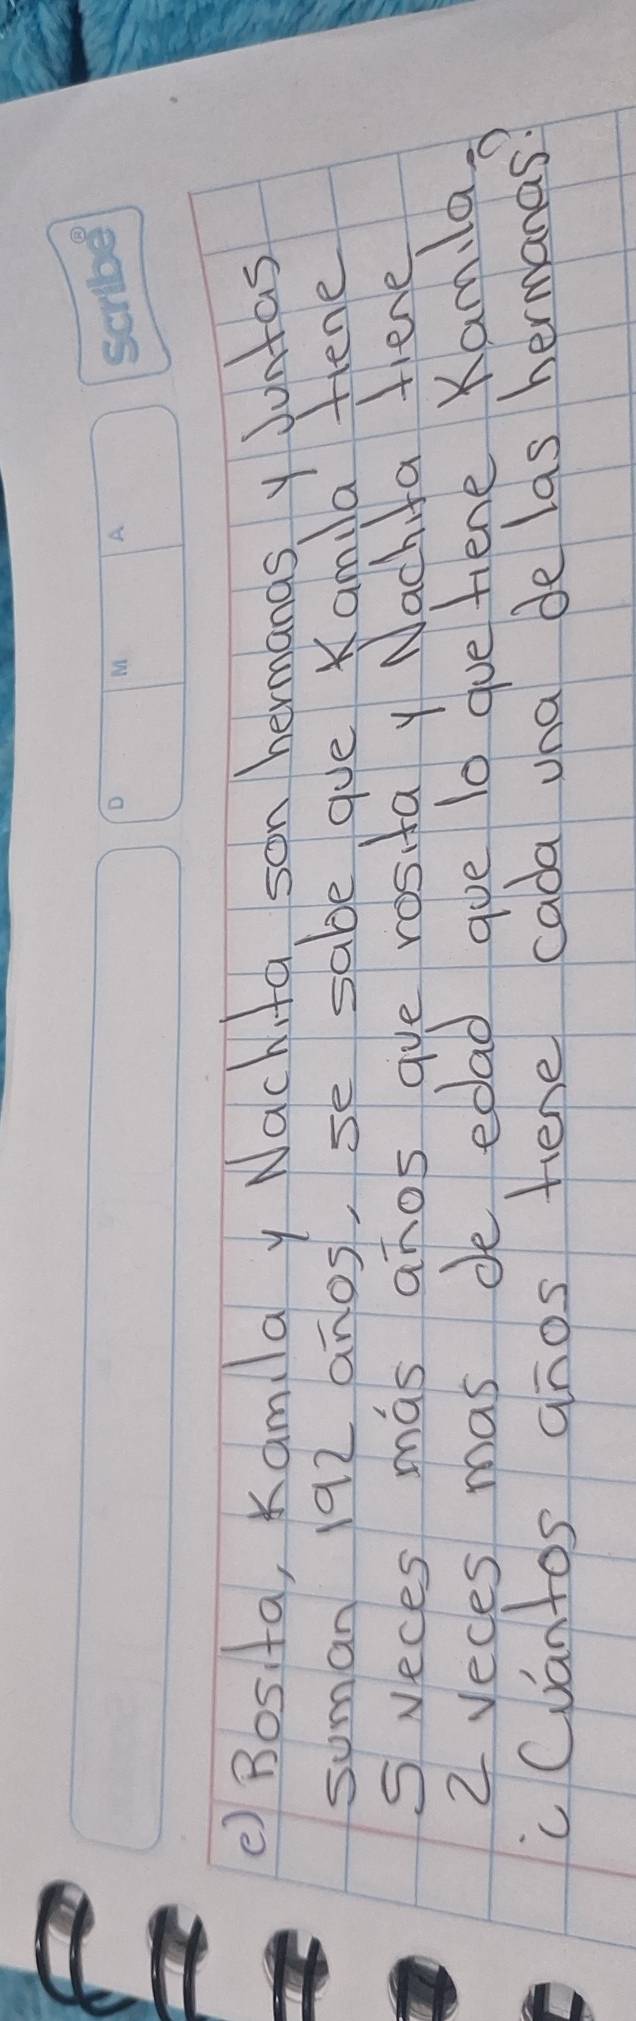 Scribe®
D M A
c) Rosita, Kamila y Nachita son hermanas y juntas
suman 192 años, se sabe que Kamila tiene
5 veces más años que rosita y Nachita tiene
2 veces mas de edad que lo que tiene Kamila
¿Cuántos años tiene cada una de las hermanas?